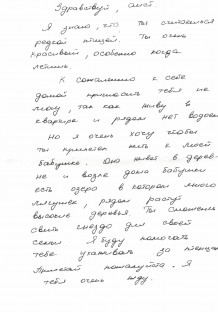 Здравствуй, аист.
Я знаю, что ты считаешься
редкой птицей. Ты очень
красивый, особенно когда
летишь.
К сожалению к себе
домой пригласить тебя не
могу, так как живу в
квартире и рядом нет водоем
Но я очень хочу чтобы
ты прилетел жить к моей
бабушке. Она живёт в дерев-
не и возле дома бабушки
есть озеро в котором много
лягушек, рядом растут
высокие деревья. Ты сможешь
свить гнездо для своей
семьи Я буду помогать
тебе ухаживать за птенцами
Прилетай пожалуйста. Я
тебя очень жду.